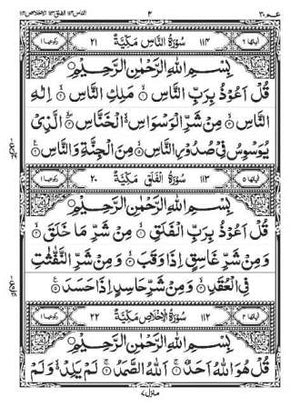 الناس ١١٤ الفلق ١١٣ الاخلاص ١١٢ ٣ عم ٣٠
اٰيَاتُهَا ٦ ١١٤ سُوْرَةُ النَّاسِ مَكِّيَّةٌ ٢١ رُكُوْعُهَا ١
بِسْمِ اللّٰهِ الرَّحْمٰنِ الرَّحِيْمِ
قُلْ اَعُوْذُ بِرَبِّ النَّاسِ ۙ مَلِكِ النَّاسِ ۙ اِلٰهِ
النَّاسِ ۙ مِنْ شَرِّ الْوَسْوَاسِ ۙ الْخَنَّاسِ ۙ الَّذِيْ
يُوَسْوِسُ فِيْ صُدُوْرِ النَّاسِ ۙ مِنَ الْجِنَّةِ وَالنَّاسِ
اٰيَاتُهَا ٥ ١١٣ سُوْرَةُ الْفَلَقِ مَكِّيَّةٌ ٢٠ رُكُوْعُهَا ١
بِسْمِ اللّٰهِ الرَّحْمٰنِ الرَّحِيْمِ
قُلْ اَعُوْذُ بِرَبِّ الْفَلَقِ ۙ مِنْ شَرِّ مَا خَلَقَ ۙ
وَمِنْ شَرِّ غَاسِقٍ اِذَا وَقَبَ ۙ وَمِنْ شَرِّ النَّفّٰثٰتِ
فِي الْعُقَدِ ۙ وَمِنْ شَرِّ حَاسِدٍ اِذَا حَسَدَ
اٰيَاتُهَا ٤ ١١٢ سُوْرَةُ الْاِخْلَاصِ مَكِّيَّةٌ ٢٢ رُكُوْعُهَا ١
بِسْمِ اللّٰهِ الرَّحْمٰنِ الرَّحِيْمِ
قُلْ هُوَ اللّٰهُ اَحَدٌ ۚ اَللّٰهُ الصَّمَدُ ۚ لَمْ يَلِدْ ۙ وَلَمْ
منزل ٧